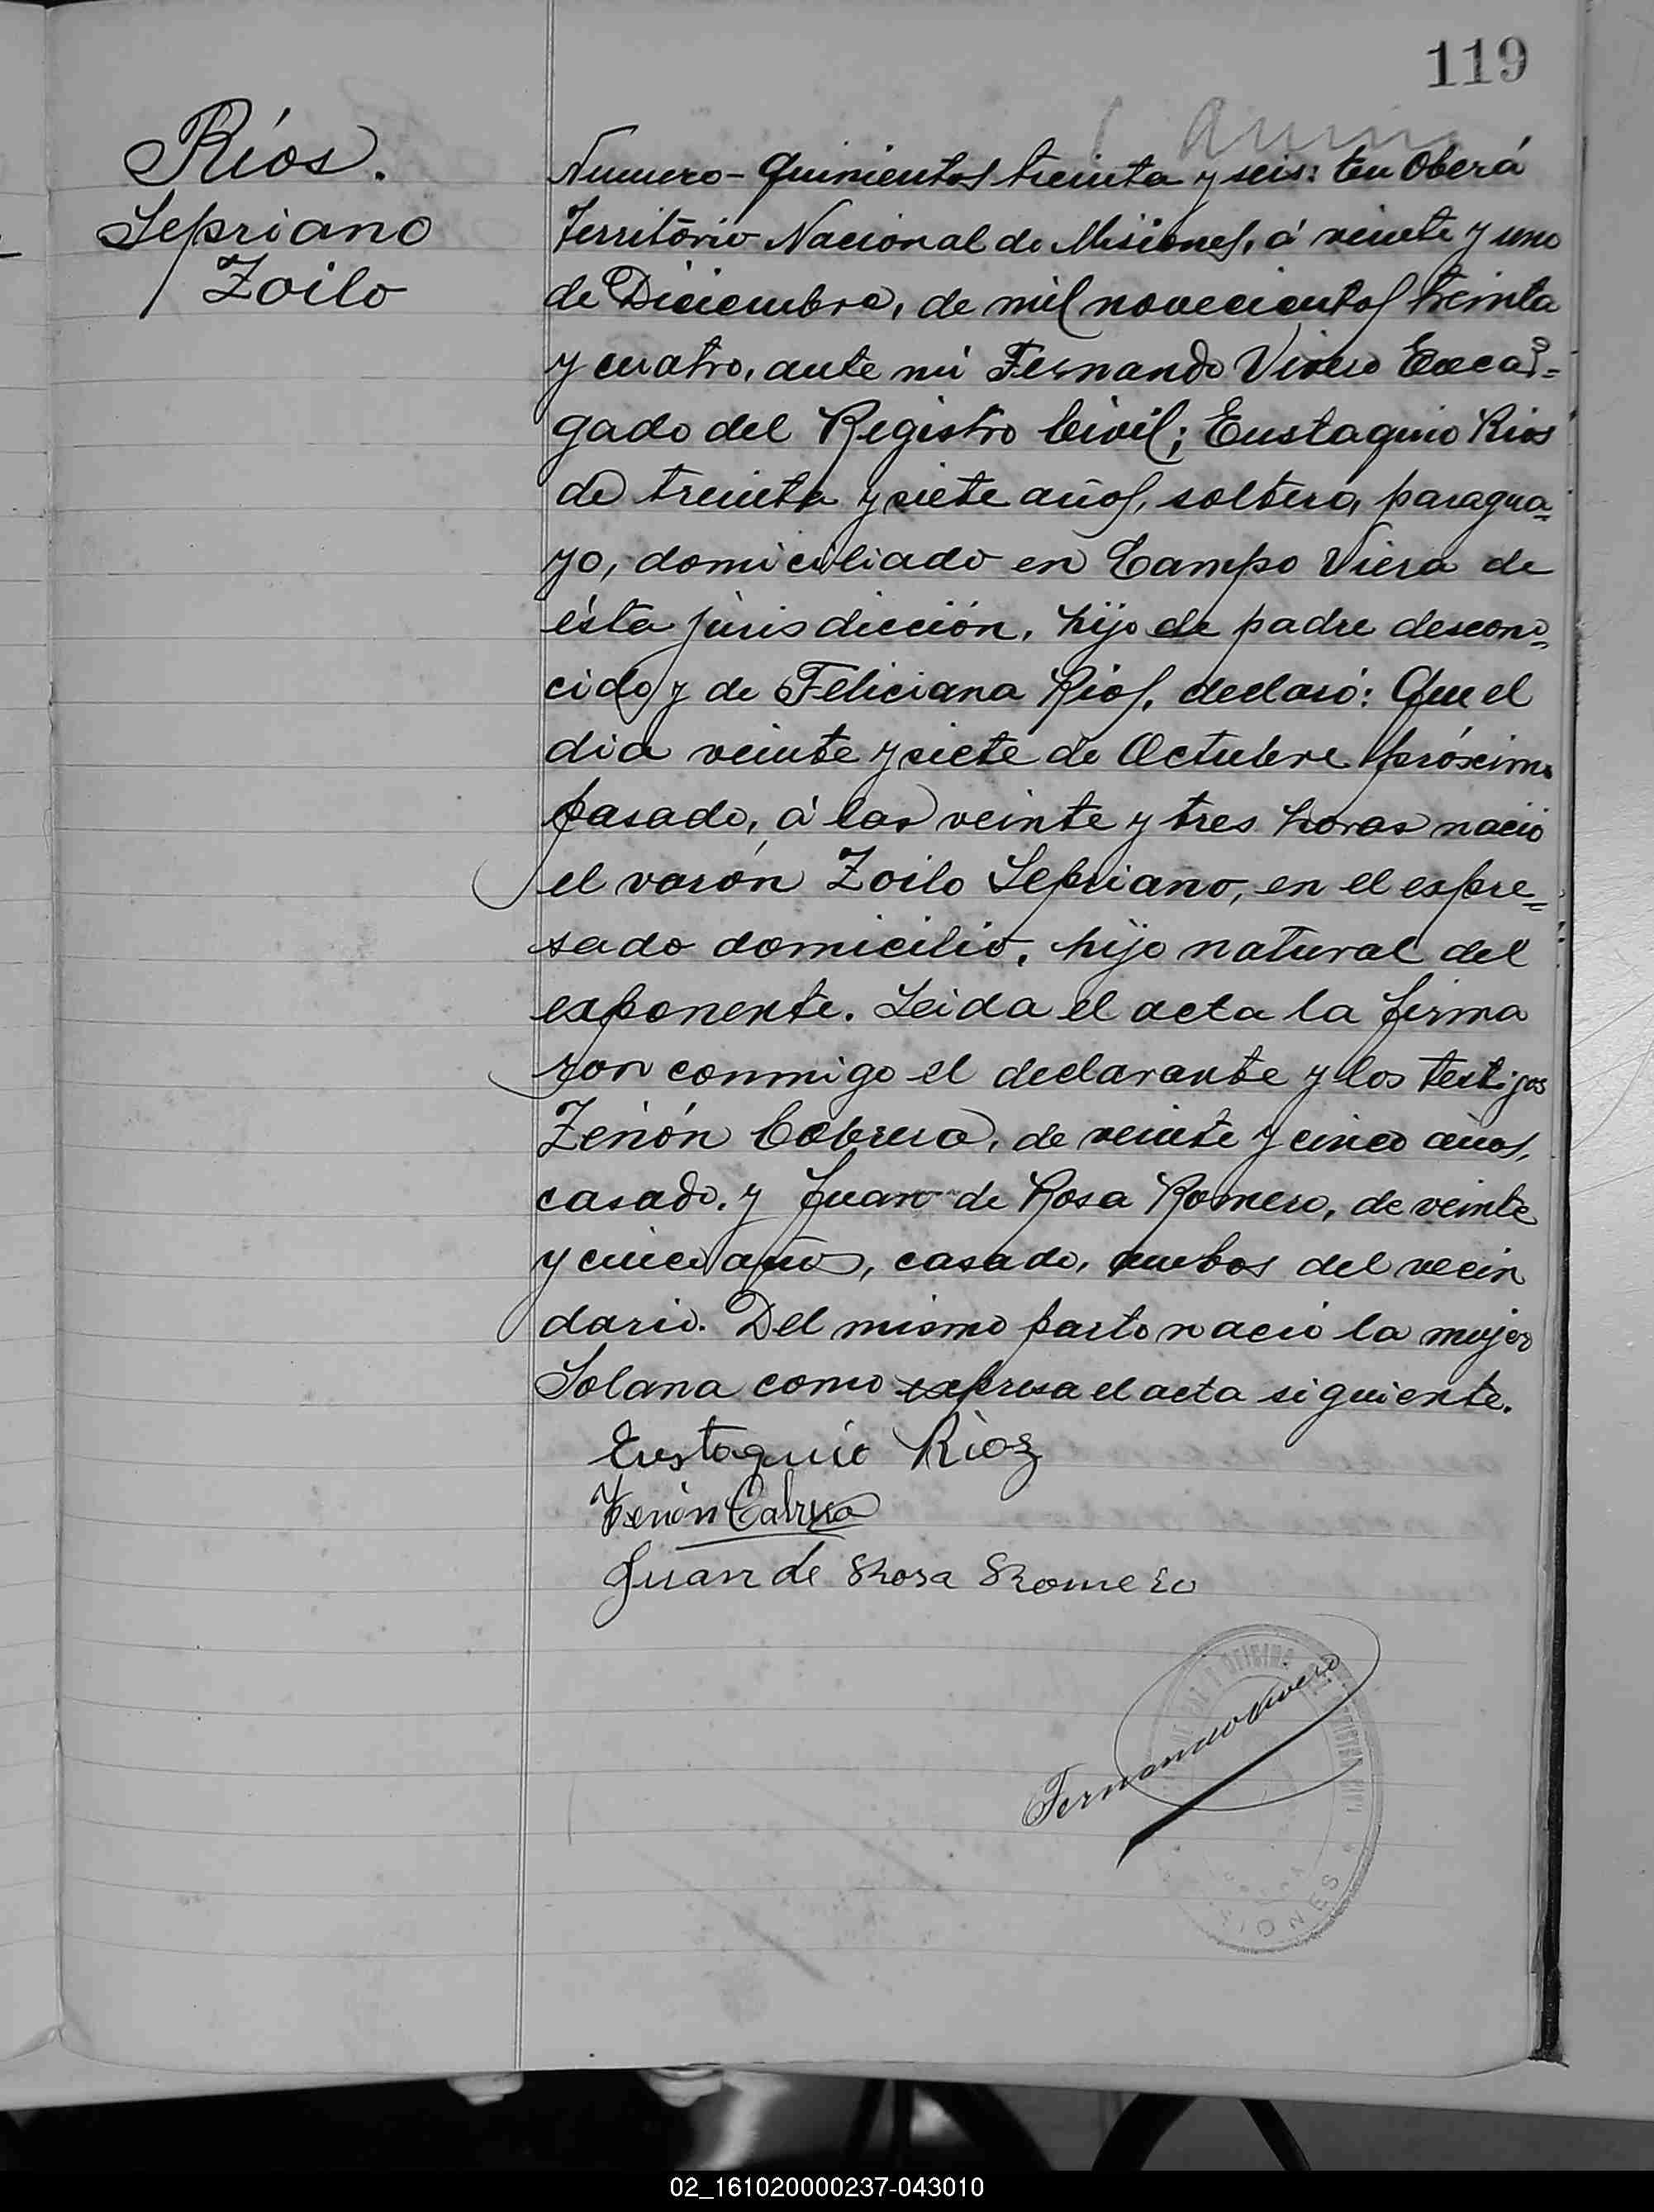 119
Ríos.
Sepriano
Zoilo
Numero - Quinientos treinta y seis: En Oberá
Territorio Nacional de Misiones, á veinte y uno
de Diciembre, de mil novecientos treinta
y cuatro, ante mi Fernando Vivero Encar-
gado del Registro Civil; Eustaquio Rios
de treinta y siete años, soltero, paragua-
yo, domiciliado en Campo Viera de
ésta jurisdicción, hijo de padre descono-
cido y de Feliciana Rios, declaró: Que el
dia veinte y siete de Octubre próximo
pasado, á las veinte y tres horas nació
el varón Zoilo Sepriano, en el expre-
sado domicilio, hijo natural del
exponente. Leida el acta la firma
ron conmigo el declarante y los testigos
Zenón Cabrera, de veinte y cinco años,
casado, y Juan de Rosa Romero, de veinte
y cinco años, casado, ambos del vecin
dario. Del mismo parto nació la mujer
Solana como expresa el acta siguiente.
Eustaquio Rioz
Zenón Cabrera
Juan de Rosa Romero
Fernando Vivero
IONES
02_161020000237-043010